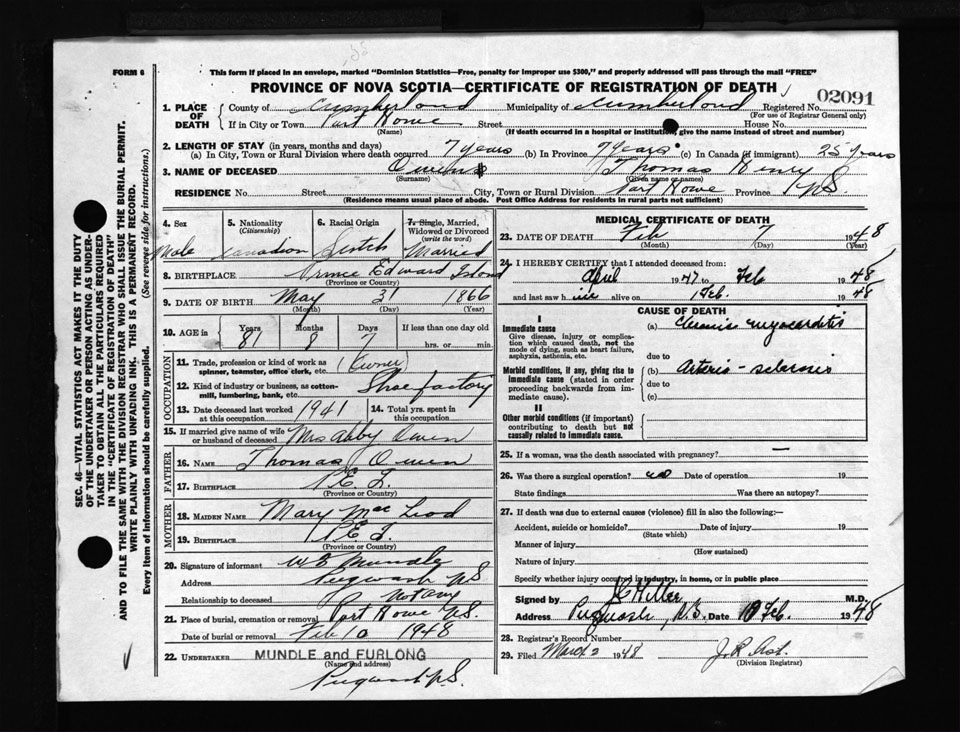 FORM 6
This form if placed in an envelope, marked "Dominion Statistics—Free, penalty for improper use $300," and properly addressed will pass through the mail "FREE"
PROVINCE OF NOVA SCOTIA—CERTIFICATE OF REGISTRATION OF DEATH
02091
1. PLACE OF DEATH
County of Cumberland Municipality of Cumberland Registered No.
(For use of Registrar General only)
If in City or Town Port Howe Street House No.
(Name) (If death occurred in a hospital or institution, give the name instead of street and number)
2. LENGTH OF STAY (in years, months and days)
(a) In City, Town or Rural Division where death occurred 7 years (b) In Province 7 years (c) In Canada (if immigrant) 25 years
3. NAME OF DECEASED Owens Thomas Henry
(Surname) (Given name or names)
RESIDENCE No. Street City, Town or Rural Division Port Howe Province N.S.
(Residence means usual place of abode. Post Office Address for residents in rural parts not sufficient)
4. Sex
Male
5. Nationality
(Citizenship)
Canadian
6. Racial Origin
Scotch
7. Single, Married, Widowed or Divorced
(write the word)
Married
8. BIRTHPLACE Prince Edward Island
(Province or Country)
9. DATE OF BIRTH May 31 1866
(Month) (Day) (Year)
10. AGE in Years Months Days If less than one day old
81 8 7 hrs. or min.
OCCUPATION
11. Trade, profession or kind of work as spinner, teamster, office clerk, etc. (Owner)
12. Kind of industry or business, as cotton-mill, lumbering, bank, etc. Shoe factory
13. Date deceased last worked at this occupation 1941
14. Total yrs. spent in this occupation
15. If married give name of wife or husband of deceased Mrs Abby Owen
FATHER
16. NAME Thomas Owen
17. BIRTHPLACE P.E.I.
(Province or Country)
MOTHER
18. MAIDEN NAME Mary MacLeod
19. BIRTHPLACE P.E.I.
(Province or Country)
20. Signature of informant Mundle
Address Pugwash N.S
Relationship to deceased Notary
21. Place of burial, cremation or removal Port Howe N.S.
Date of burial or removal Feb 10 1948
22. UNDERTAKER MUNDLE and FURLONG
(Name and address)
Pugwash N.S.
MEDICAL CERTIFICATE OF DEATH
23. DATE OF DEATH Feb 7 1948
(Month) (Day) (Year)
24. I HEREBY CERTIFY that I attended deceased from:
April 1947 to Feb 1948
and last saw h im alive on 1 Feb. 1948
CAUSE OF DEATH
I
Immediate cause
Give disease, injury or complication which caused death, not the mode of dying, such as heart failure, asphyxia, asthenia, etc.
(a) Chronic myocarditis
due to
Morbid conditions, if any, giving rise to immediate cause (stated in order proceeding backwards from immediate cause).
(b) Arterio-sclerosis
due to
(c)
II
Other morbid conditions (if important) contributing to death but not causally related to immediate cause.
25. If a woman, was the death associated with pregnancy? —
26. Was there a surgical operation? no Date of operation 19
State findings Was there an autopsy?
27. If death was due to external causes (violence) fill in also the following:—
Accident, suicide or homicide? Date of injury 19
(State which)
Manner of injury
(How sustained)
Nature of injury
Specify whether injury occurred in industry, in home, or in public place
Signed by Hiller M.D.
Address Pugwash, N.S. Date 10 Feb. 1948
28. Registrar's Record Number
29. Filed March 2 1948
(Division Registrar)
SEC. 46—VITAL STATISTICS ACT MAKES IT THE DUTY
OF THE UNDERTAKER OR PERSON ACTING AS UNDER-
TAKER TO OBTAIN ALL THE PARTICULARS REQUIRED
IN THE "CERTIFICATE OF REGISTRATION OF DEATH"
AND TO FILE THE SAME WITH THE DIVISION REGISTRAR WHO SHALL ISSUE THE BURIAL PERMIT.
WRITE PLAINLY WITH UNFADING INK. THIS IS A PERMANENT RECORD.
Every item of Information should be carefully supplied. (See reverse side for instructions.)